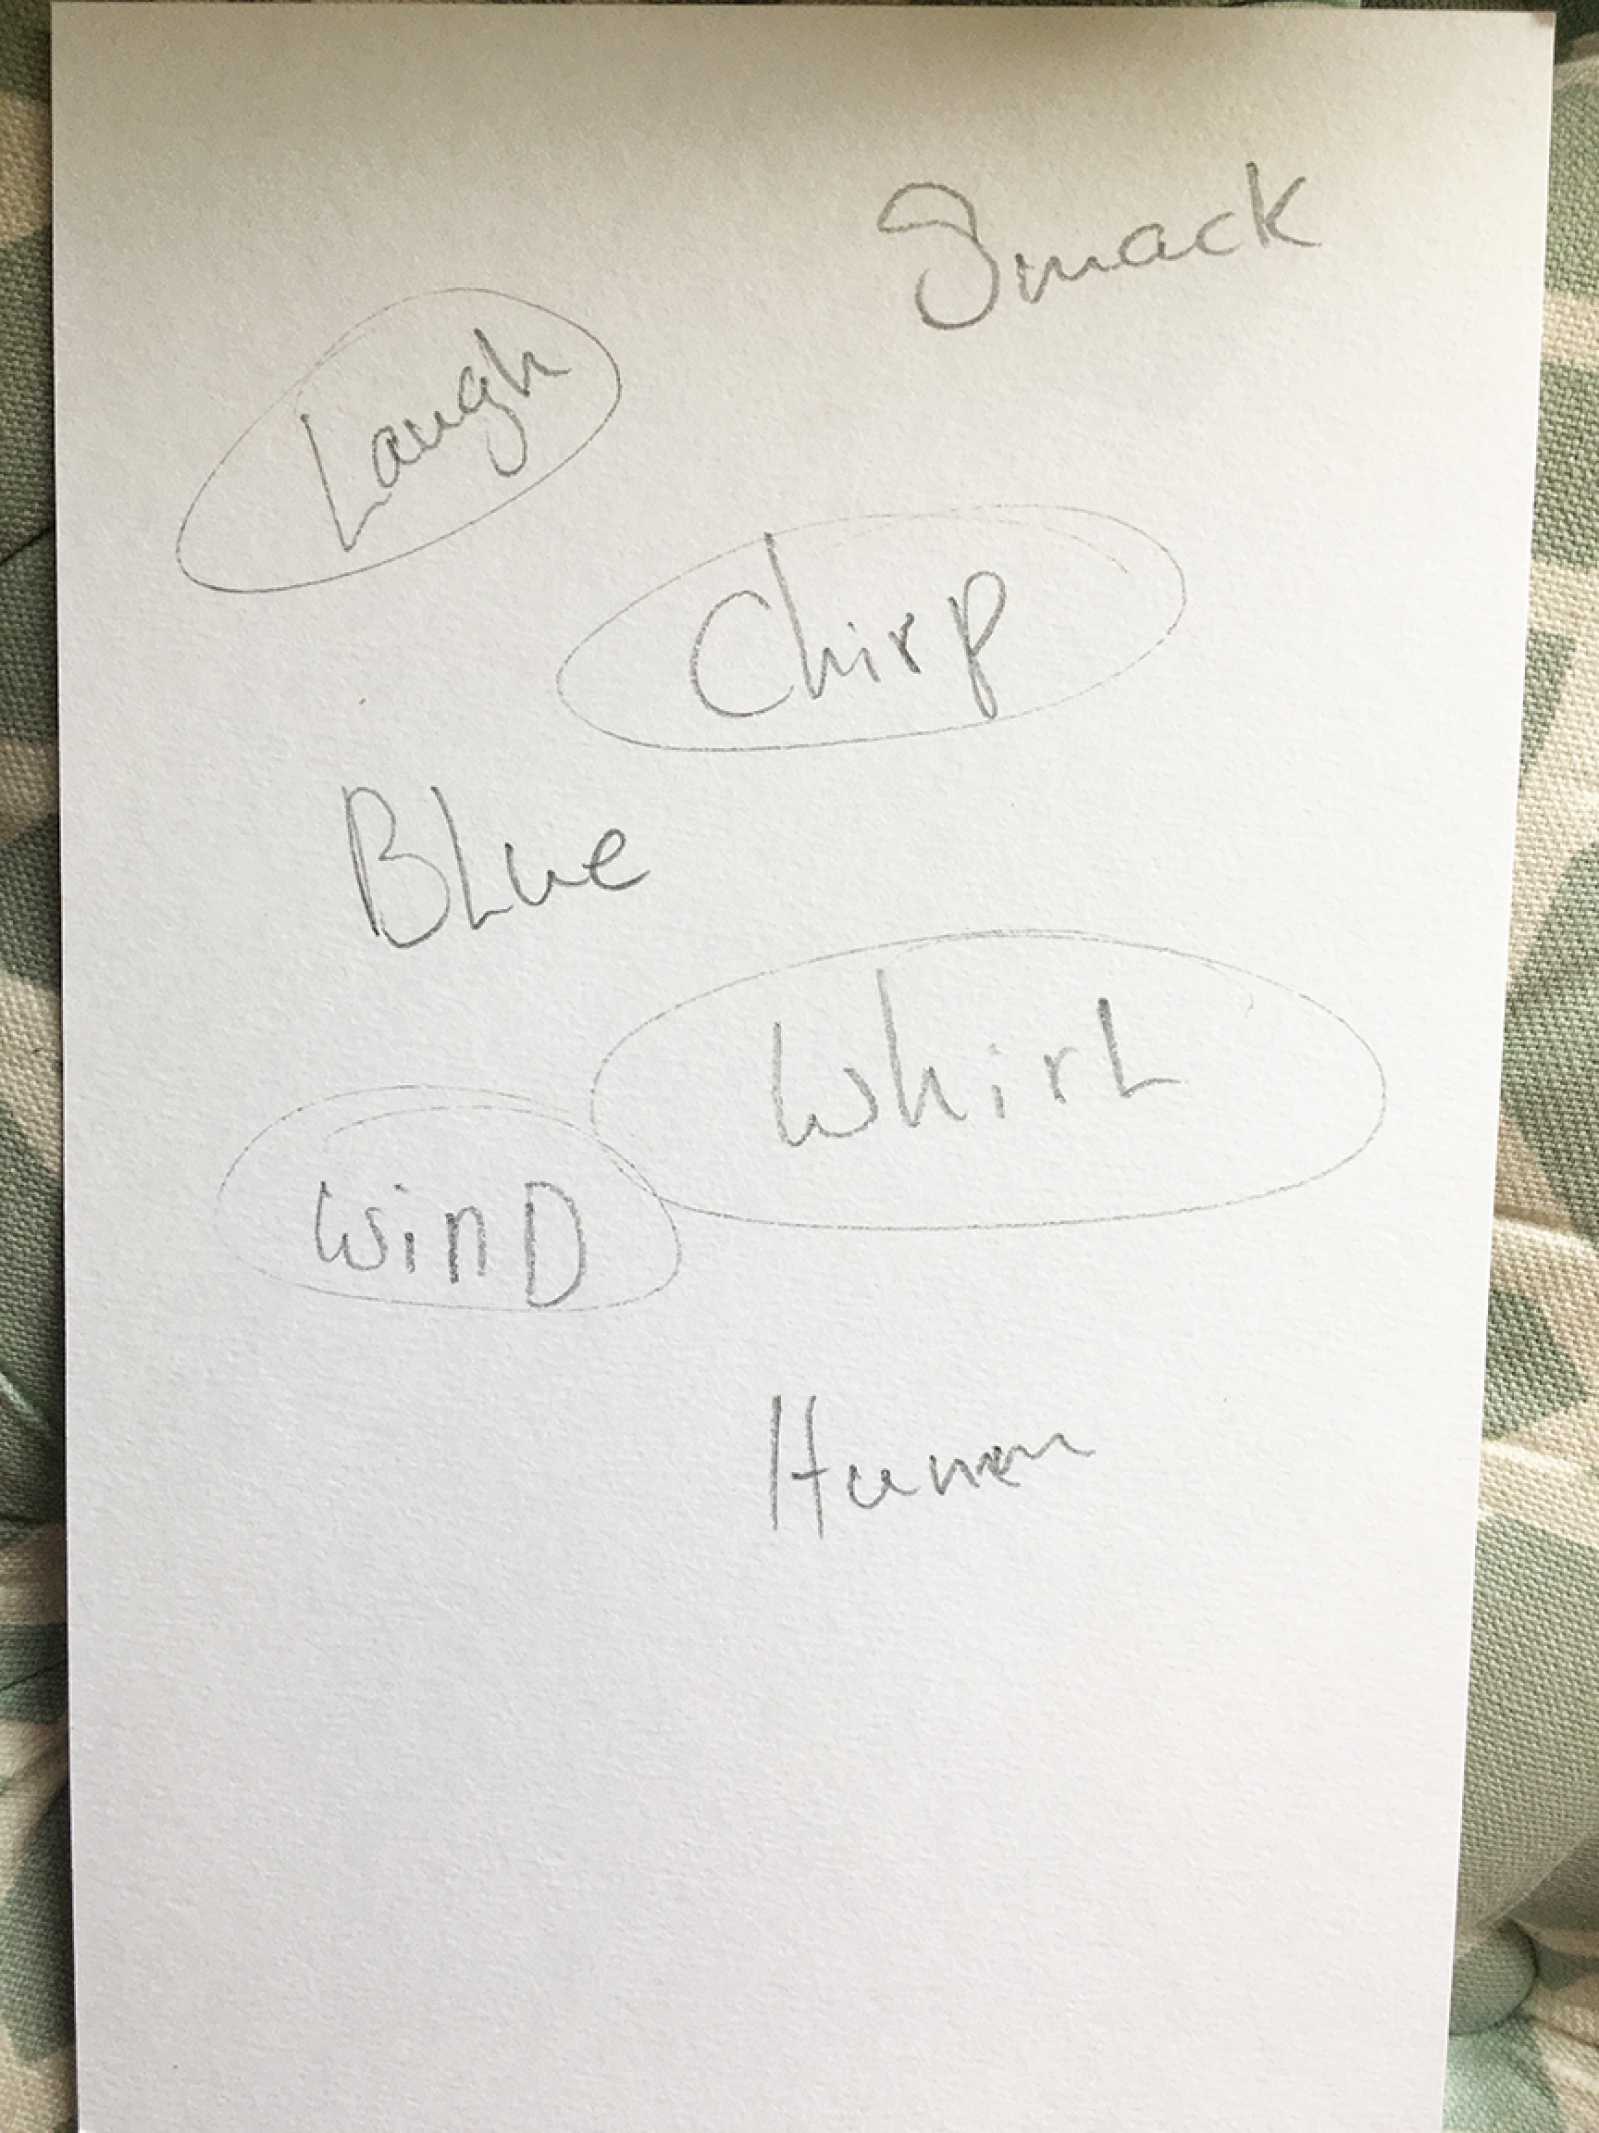 Smack
Laugh
Chirp
BLue
WhirL
WinD
Human